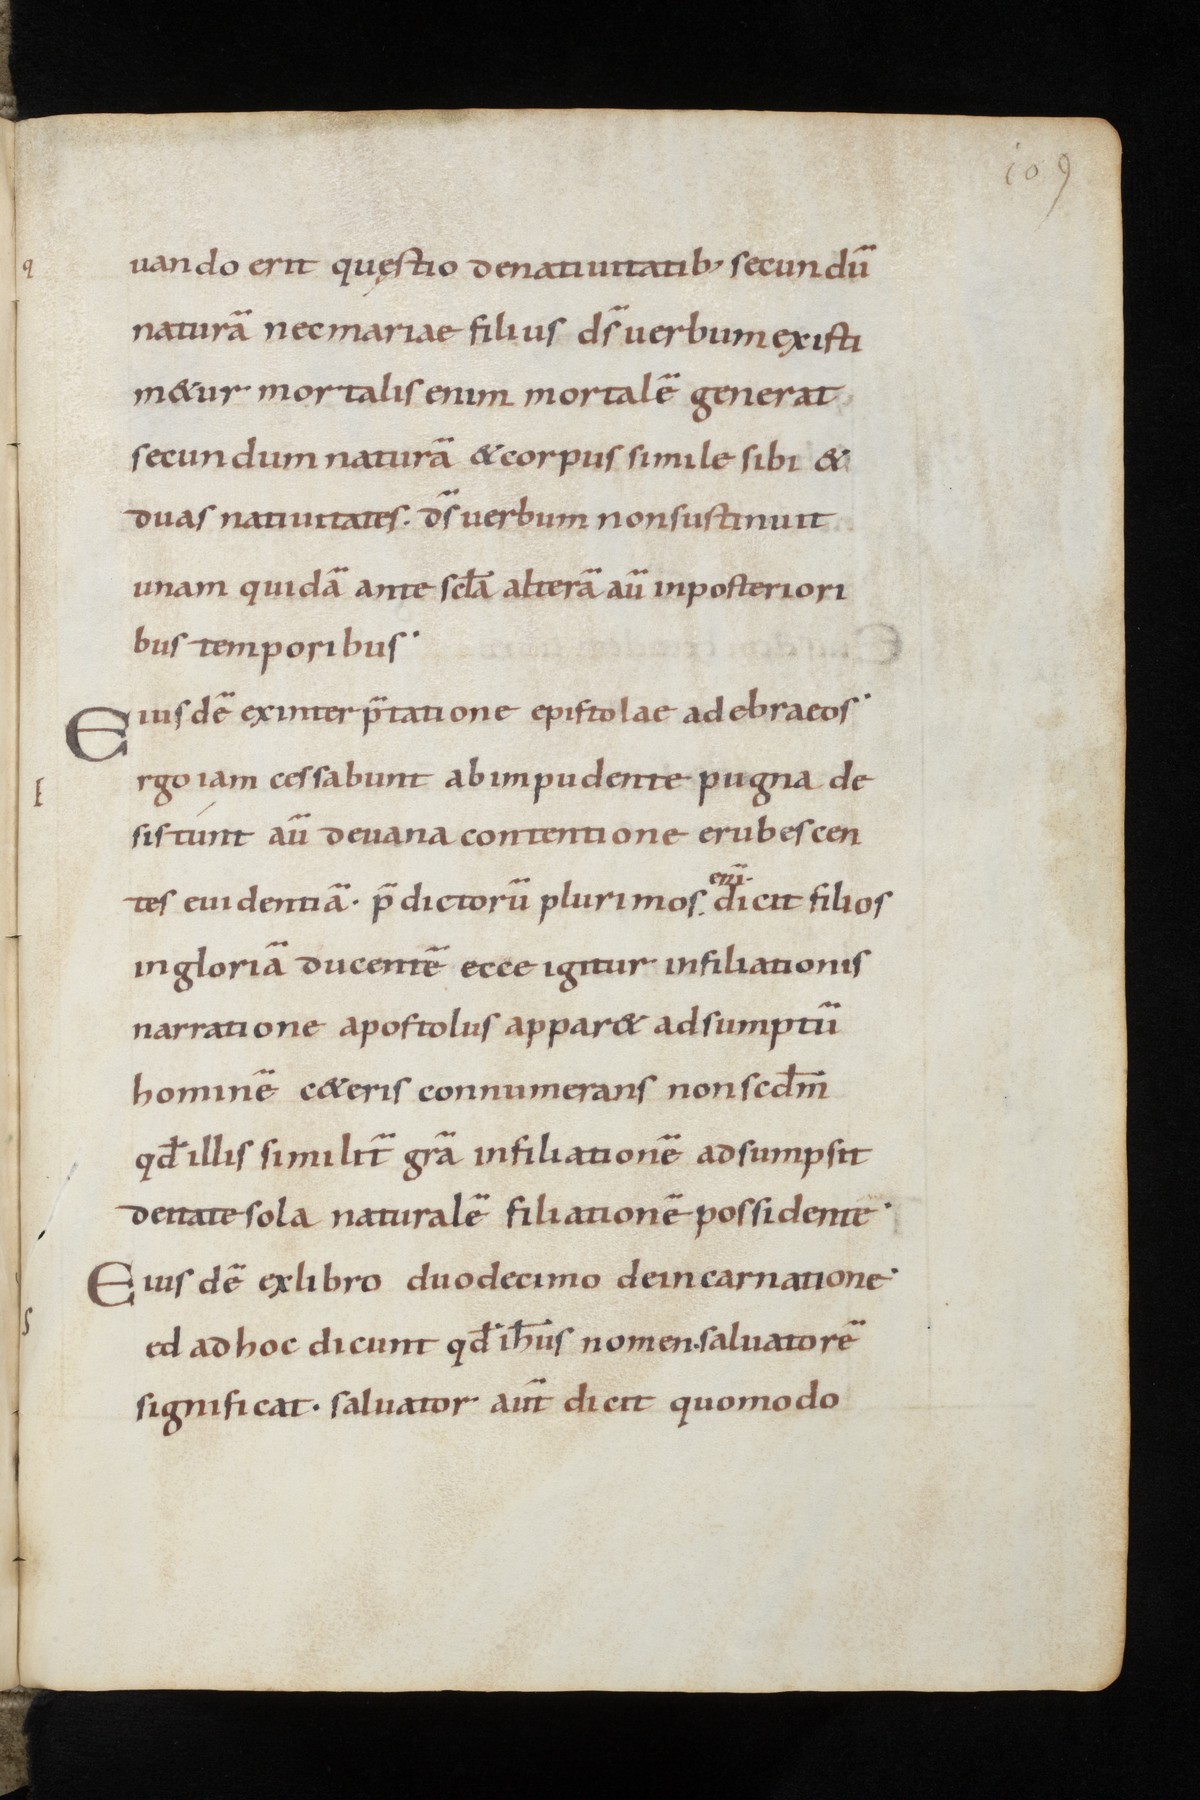 109
q uando erit quęstio denatiuitatib; secundū
naturā necmariae filius d̄s uerbum existi
m&ur mortalis enim mortalē generat
secundum naturā &corpus simile sibi &
duas natiuitates. d̄s uerbum nonsustinuit
unam quidā ante sc̄la alterā aū inposteriori
bus temporibus·
Eiusdē exinterp̄tatione epistolae adebraeos·
E rgo iam cessabunt abimpudente pugna de
sistunt aū deuana contentione erubescen
tes euidentiā· p̄dictorū plurimos. enī· dicit filios
ingloriā ducentē ecce igitur infiliationis
narratione apostolus appar& adsumptū
hominē c&eris connumerans nonscd̄m
qd̄ illis similit̄ grā infiliationē adsumpsit
deitate sola naturalē filiationē possidente·
Eiusdē exlibro duodecimo deincarnatione·
S ed adhoc dicunt qd̄ ih̄us nomen·saluatorē
significat· saluator aut̄ dicit quomodo